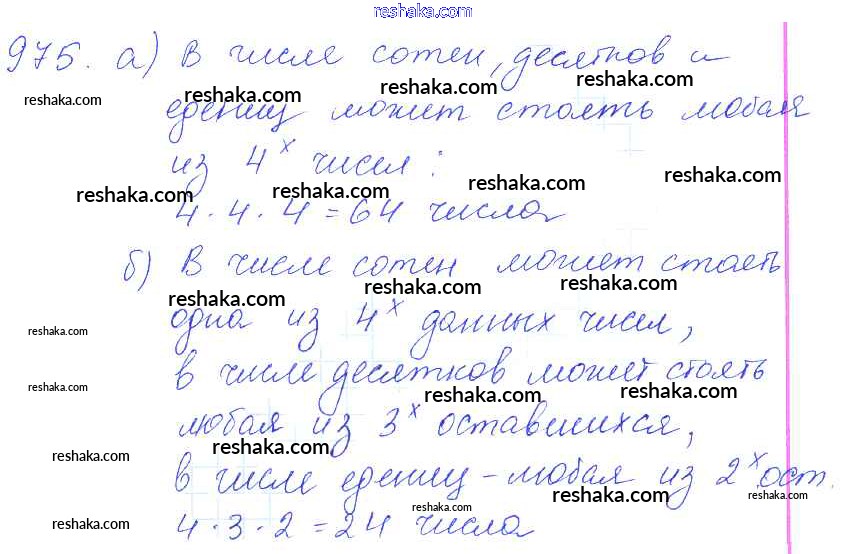 reshaka.com
975. а) В числе сотен, десятков и
едениц может стоять любая
из 4х чисел:
4 · 4 · 4 = 64 числа
б) В числе сотен может стоять
одна из 4х данных чисел,
в числе десятков может стоять
любая из 3х оставшихся,
в числе едениц - любая из 2х ост.
4 · 3 · 2 = 24 числа
reshaka.com reshaka.com reshaka.com reshaka.com
reshaka.com reshaka.com reshaka.com reshaka.com
reshaka.com reshaka.com reshaka.com
reshaka.com
reshaka.com reshaka.com reshaka.com
reshaka.com reshaka.com
reshaka.com reshaka.com reshaka.com
reshaka.com reshaka.com